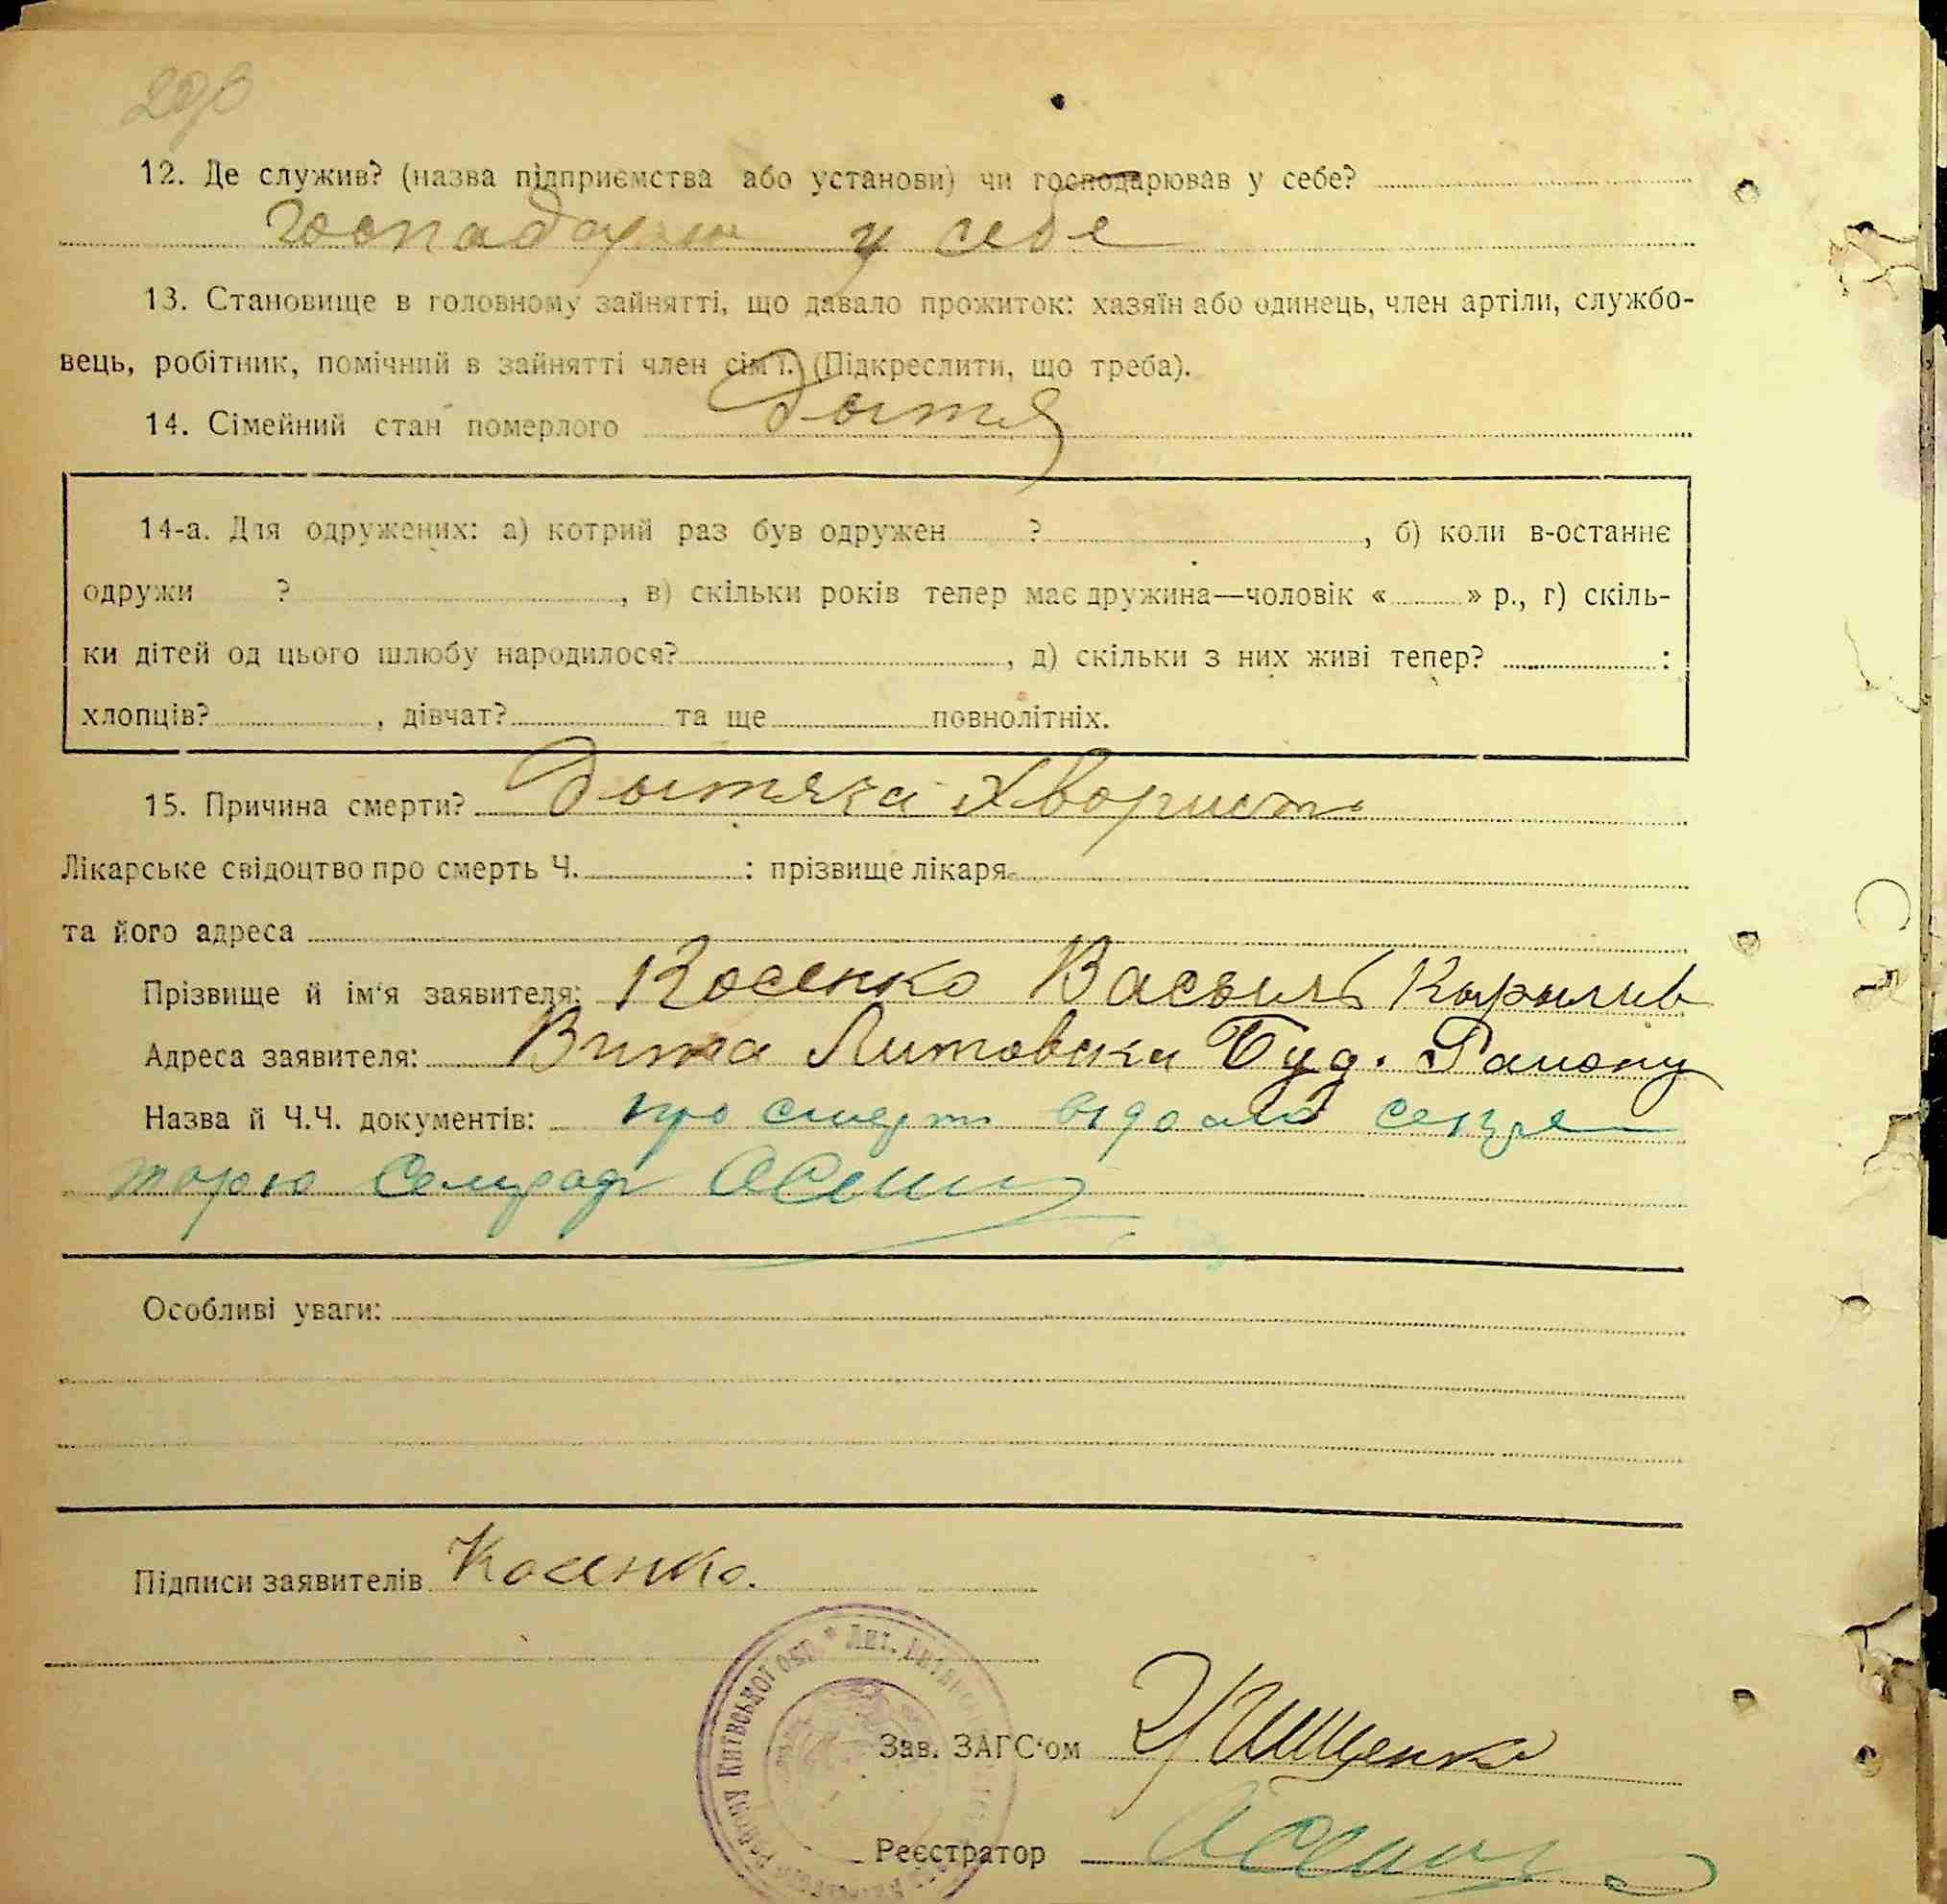 12. Де служив? (назва підприємства або установи) чи господарював у себе?
у себе
13. Становище в головному зайнятті, що давало прожиток: хазяїн або одинець, член артіли, службо-
вець, робітник, помічний в зайнятті член сім'ї. (Підкреслити, що треба).
14. Сімейний стан померлого Дытя
14-а. Для одружених: а) котрий раз був одружен ? , б) коли в-останнє
одружи ? , в) скільки років тепер має дружина—чоловік « » р., г) скіль-
ки дітей од цього шлюбу народилося? , д) скільки з них живі тепер? :
хлопців? , дівчат? та ще повнолітніх.
15. Причина смерти? Дытяча Хворист
Лікарське свідоцтво про смерть Ч. : прізвище лікаря
та його адреса
Прізвище й ім'я заявителя: Косенко Васыль Кырылив
Адреса заявителя: Вита Литовска Буд. Району
Назва й Ч.Ч. документів: про смерт видано секре
тарю Сельради
Особливі уваги:
Підписи заявителів Косенко.
Зав. ЗАГС'ом
Реєстратор
Району Київської окр. * Лит.